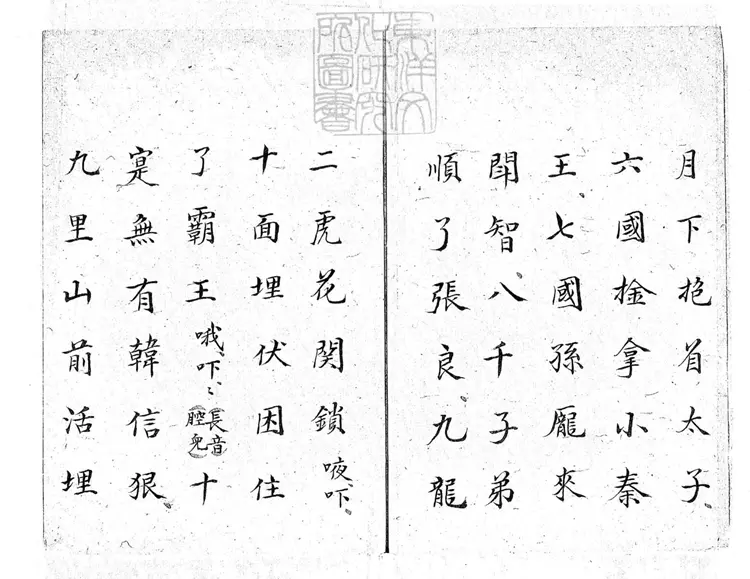 東洋文
化研究
所圖書
月下抱首太子、
六國捦拿小秦
王、七國孫龐來
閗智、八千子弟
順了張良九龍
二虎花関鎖 吓、
十面埋伏困住
了霸王哦、吓、〻長音腔兒十
寔無有韓信狠、
九里山前活埋